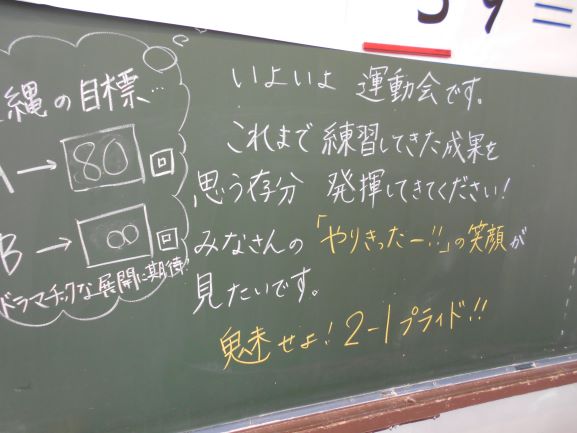 縄の目標…
A → 80 回
B → ∞ 回
ドラマチックな展開に期待
いよいよ 運動会です。
これまで練習してきた成果を
思う存分 発揮してきてください!
みなさんの「やりきったー!!」の笑顔が
見たいです。
魅せよ! 2-1プライド!!